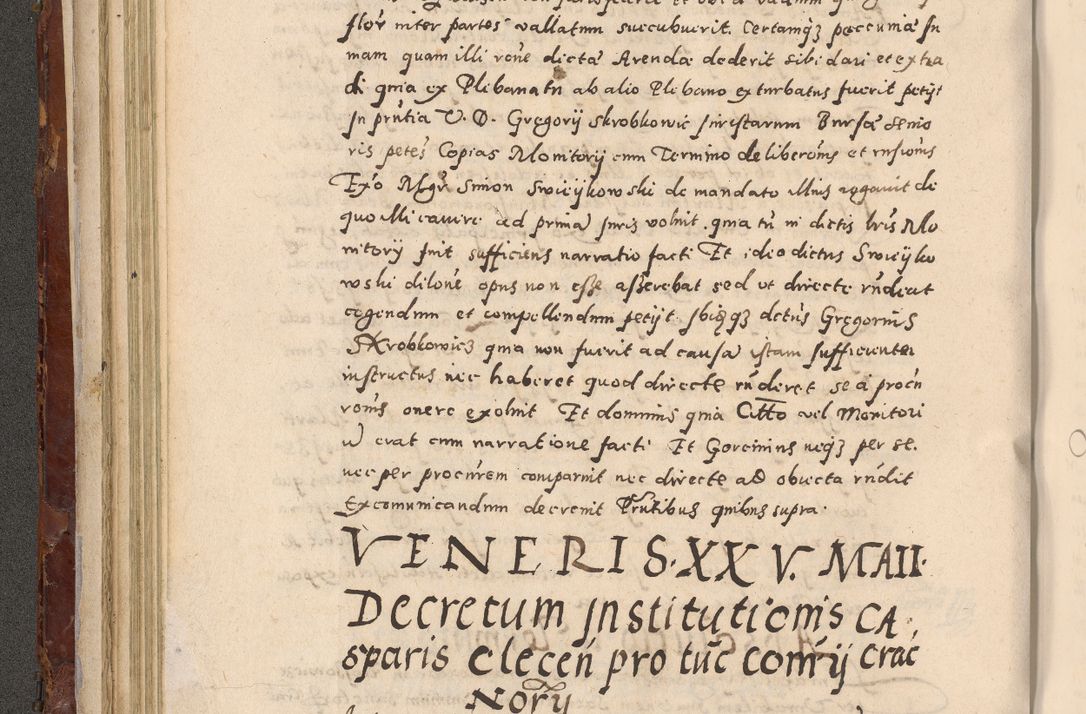 flor inter partes vallatum succubuerit. Certamq3 peccuniā Jn
mam quam illi rone dictā Arendæ dederit sibi dari et extra
di qnia ex Plebanatu ab alio Plebano exturbatus fuerit petijt
Jn pntia V. D. Gregorij Skrobkowic Juristarum Bursæ senio
ris petes Copias Monitorij cum Termino deliberonis et
Exo Mgr Simon Swieijkowski de mandato illius de
quo illi cavere ad primā Juris voluit. quia tn in dictis lris Mo
nitorij fuit sufficiens narratio facti Et ideo dictus Swieijko
wski dilone opus non esse asserebat sed ut directe rndeat
cogendum et compellendum petijt Jbiqq3 dctus Gregorius
SKrobkowicz quia non fuerit ad causā istam sufficienter
instructus nec haberet quod directe rnderet se a procn
ronis onere exoluit Et dominus quia Citto vel Monitori
ū erat cum narratione facti Et Gorcinius neq3 per se.
nec per procrem comparuit nec directe ad obiecta rndit
Excomunicandum decrevit Prntibus quibus supra.
VENERIS. XXV. MAII.
Decretum Jnstitutionis CA
sparis Clecen pro tuc Comij Crac
Norij